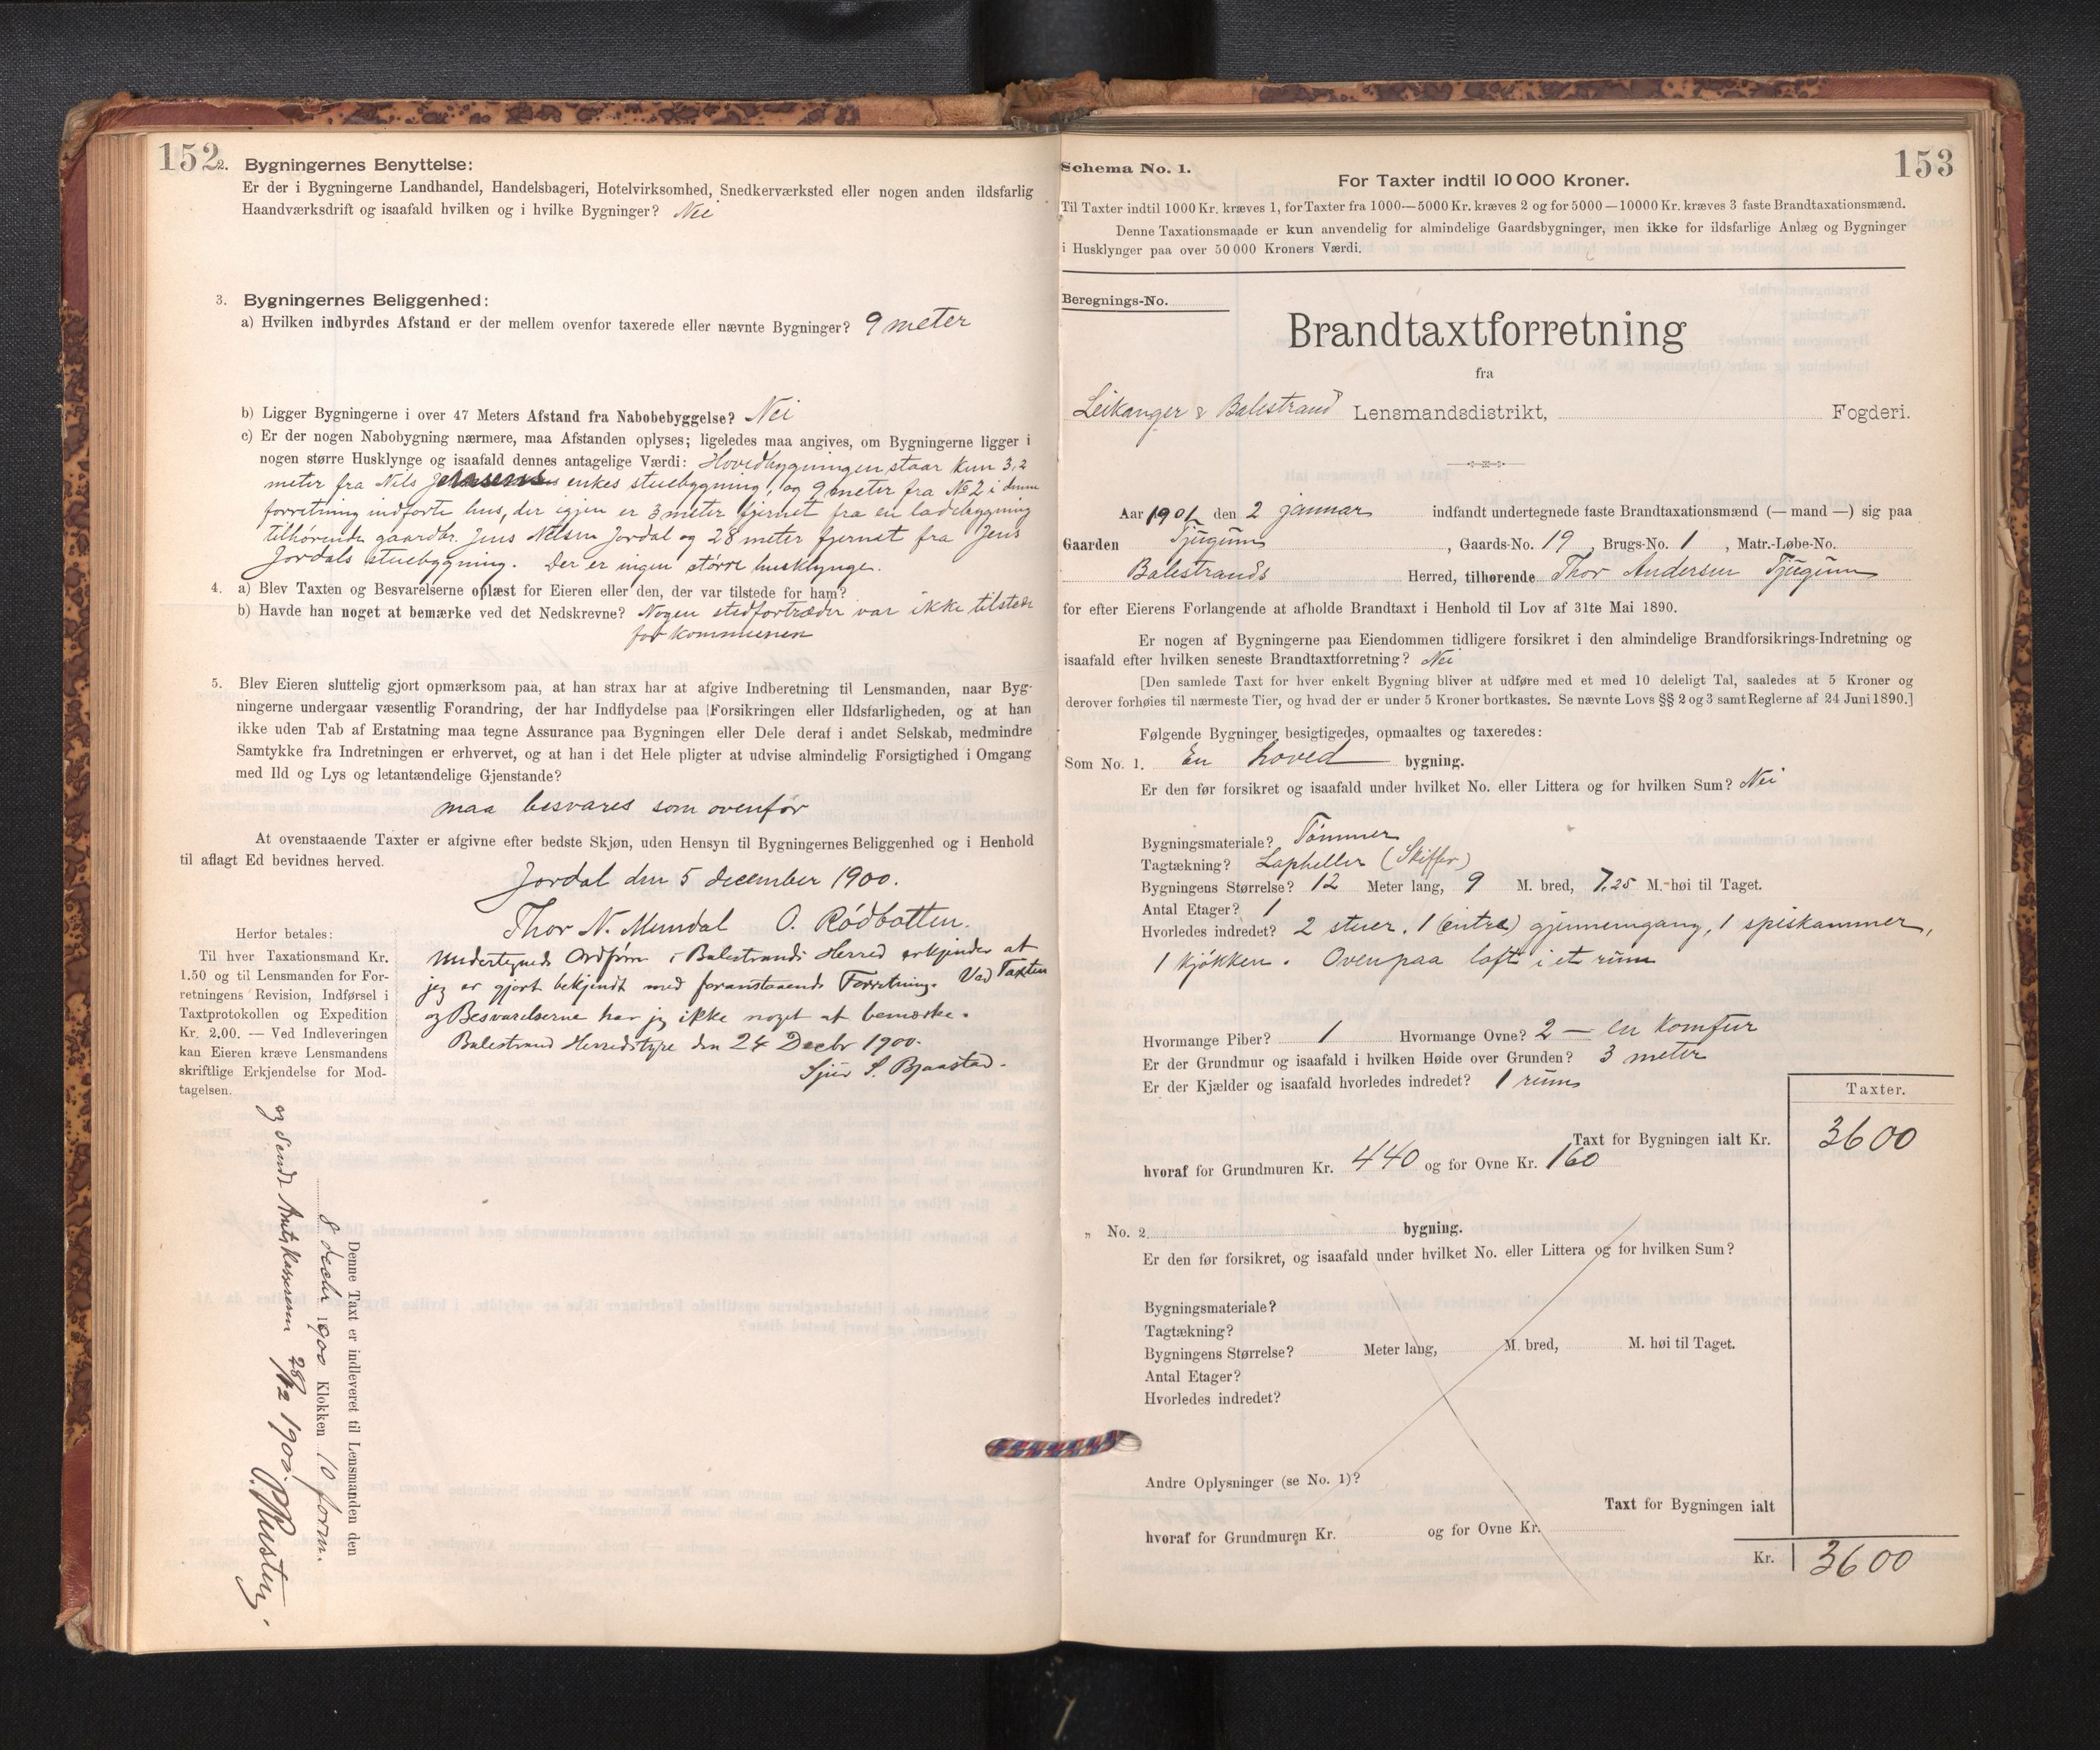 152
2. Bygningernes Benyttelse:
Er der i Bygningerne Landhandel, Handelsbageri, Hotelvirksomhed, Snedkerværksted eller nogen anden ildsfarlig
Haandværksdrift og isaafald hvilken og i hvilke Bygninger? Nei
3. Bygningernes Beliggenhed:
a) Hvilken indbyrdes Afstand er der mellem ovenfor taxerede eller nævnte Bygninger? 9 meter
b) Ligger Bygningerne i over 47 Meters Afstand fra Nabobebyggelse? Nei
c) Er der nogen Nabobygning nærmere, maa Afstanden oplyses; ligeledes maa angives, om Bygningerne ligger i
nogen større Husklynge og isaafald dennes antagelige Værdi: Hovedbygningen staar kun 3,2
meter fra Nils Jensens enkes stuebygning, og 9 meter fra No 2 i denne
forretning indførte hus, der igjen er 3 meter fjernet fra en ladebygning
tilhørende gaardbr. Jens Nilsen Jordal og 28 meter fjernet fra Jens
Jordals stuebygning. Der er ingen større husklynge.
4. a) Blev Taxten og Besvarelserne oplæst for Eieren eller den, der var tilstede for ham?
b) Havde han noget at bemærke ved det Nedskrevne? Nogen stedfortræder var ikke tilstede
for kommunen
5. Blev Eieren sluttelig gjort opmærksom paa, at han strax har at afgive Indberetning til Lensmanden, naar Byg-
ningerne undergaar væsentlig Forandring, der har Indflydelse paa Forsikringen eller Ildsfarligheden, og at han
ikke uden Tab af Erstatning maa tegne Assurance paa Bygningen eller Dele deraf i andet Selskab, medmindre
Samtykke fra Indretningen er erhvervet, og at han i det Hele pligter at udvise almindelig Forsigtighed i Omgang
med Ild og Lys og letantændelige Gjenstande?
maa besvares som ovenfor
At ovenstaaende Taxter er afgivne efter bedste Skjøn, uden Hensyn til Bygningernes Beliggenhed og i Henhold
til aflagt Ed bevidnes herved.
Jordal den 5 december 1900.
Thor N. Mundal O. Rødbotten.
Undertegnede Ordfører i Balestrands Herred erkjender at
jeg er gjort bekjendt med foranstaaende Forretning. Ved Taxten
og Besvarelserne har jeg ikke noget at bemærke.
Balestrand Herredstyre den 24 Decbr 1900.
Sjur S. Bjaastad.
Herfor betales:
Til hver Taxationsmand Kr.
1.50 og til Lensmanden for For-
retningens Revision, Indførsel i
Taxtprotokollen og Expedition
Kr. 2.00. — Ved Indleveringen
kan Eieren kræve Lensmandens
skriftlige Erkjendelse for Mod-
tagelsen.
Denne Taxt er indleveret til Lensmanden den
8 decbr 1900 Klokken 10 form.
og sendt Amtskassereren 28/12 1900.
153
Schema No. 1.
For Taxter indtil 10 000 Kroner.
Til Taxter indtil 1000 Kr. kræves 1, for Taxter fra 1000—5000 Kr. kræves 2 og for 5000—10000 Kr. kræves 3 faste Brandtaxationsmænd.
Denne Taxationsmaade er kun anvendelig for almindelige Gaardsbygninger, men ikke for ildsfarlige Anlæg og Bygninger
i Husklynger paa over 50 000 Kroners Værdi.
Beregnings-No.
Brandtaxtforretning
fra
Leikanger & Balestrand Lensmandsdistrikt, Fogderi.
Aar 1901 den 2 januar indfandt undertegnede faste Brandtaxationsmænd (— mand —) sig paa
Gaarden Tjugum, Gaards-No. 19, Brugs-No. 1, Matr.-Løbe-No.
Balestrands Herred, tilhørende Thor Andersen Tjugum
for efter Eierens Forlangende at afholde Brandtaxt i Henhold til Lov af 31te Mai 1890.
Er nogen af Bygningerne paa Eiendommen tidligere forsikret i den almindelige Brandforsikrings-Indretning og
isaafald efter hvilken seneste Brandtaxtforretning? Nei
[Den samlede Taxt for hver enkelt Bygning bliver at udføre med et med 10 deleligt Tal, saaledes at 5 Kroner og
derover forhøies til nærmeste Tier, og hvad der er under 5 Kroner bortkastes. Se nævnte Lovs §§ 2 og 3 samt Reglerne af 24 Juni 1890.]
Følgende Bygninger besigtigedes, opmaaltes og taxeredes:
Som No. 1. En hoved bygning.
Er den før forsikret og isaafald under hvilket No. eller Littera og for hvilken Sum? Nei
Bygningsmateriale? Tømmer
Tagtækning? Lapheller (Skiffer)
Bygningens Størrelse? 12 Meter lang, 9 M. bred, 7,25 M. høi til Taget.
Antal Etager? 1
Hvorledes indredet? 2 stuer, 1 (entre) gjennemgang, 1 spiskammer,
1 kjøkken. Ovenpaa loft i et rum
Hvormange Piber? 1 Hvormange Ovne? 2 — en komfur
Er der Grundmur og isaafald i hvilken Høide over Grunden? 3 meter
Er der Kjælder og isaafald hvorledes indredet? 1 rum
Taxter.
Taxt for Bygningen ialt Kr. 3600
hvoraf for Grundmuren Kr. 440 og for Ovne Kr. 160
„ No. 2 bygning.
Er den før forsikret, og isaafald under hvilket No. eller Littera og for hvilken Sum?
Bygningsmateriale?
Tagtækning?
Bygningens Størrelse? Meter lang, M. bred, M. høi til Taget.
Antal Etager?
Hvorledes indredet?
Andre Oplysninger (se No. 1)?
Taxt for Bygningen ialt
hvoraf for Grundmuren Kr. og for Ovne Kr.
Kr. 3600